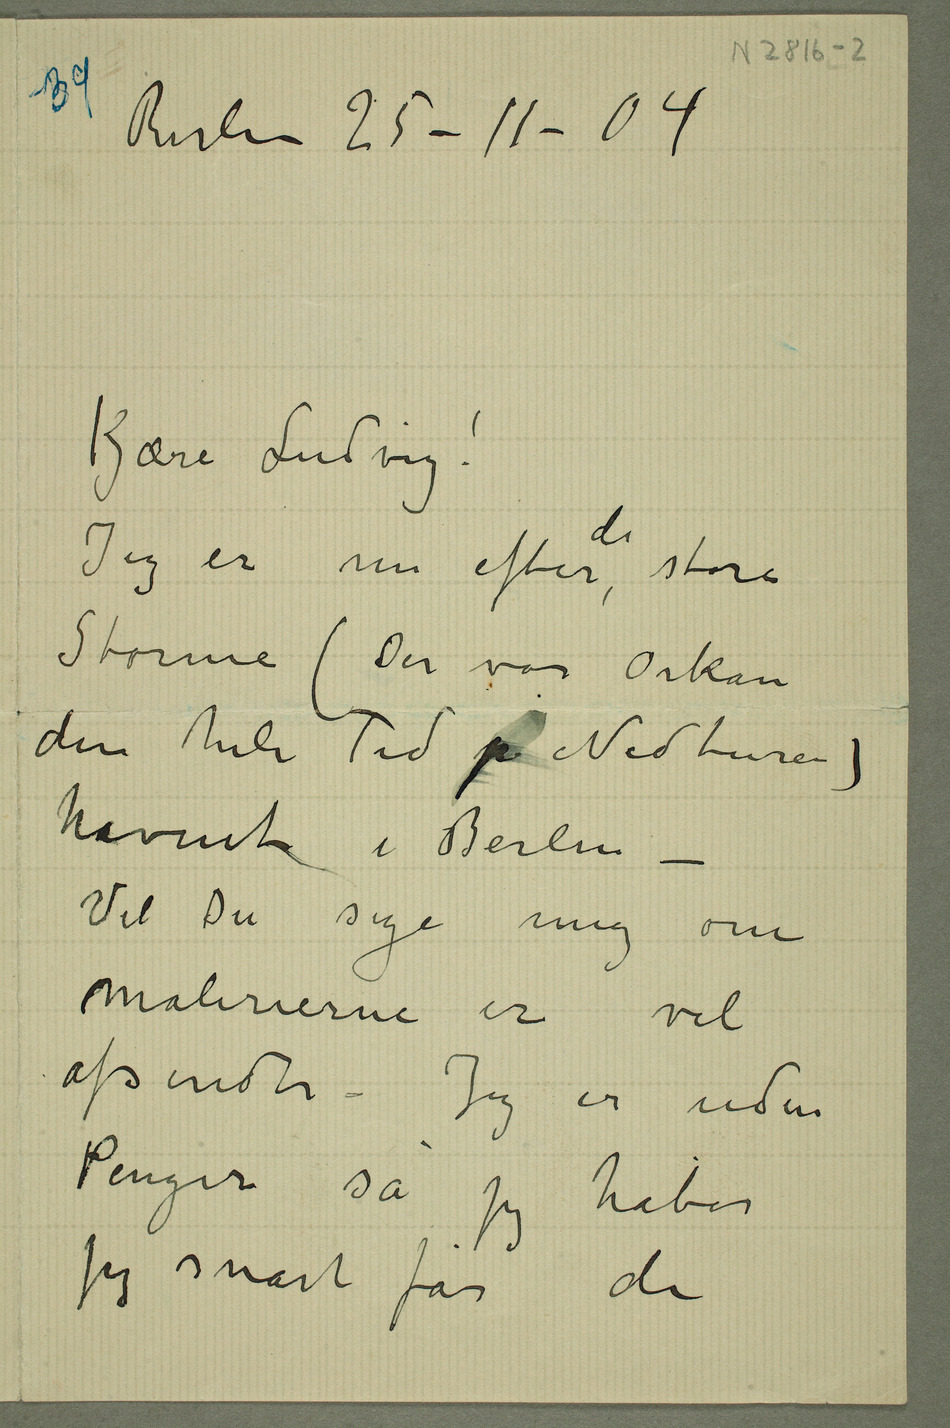 N 2816-2
39
Berlin 25 – 11 – 04
Kjære Ludvig!
Jeg er nu efter de store
Storme (Der var Orkan
den hele Tid på Nedturen)
havnet i Berlin –
Vil Du sige mig om
malerierne er vel
afsendte – Jeg er uden
Penger så jeg håber
jeg snart får de